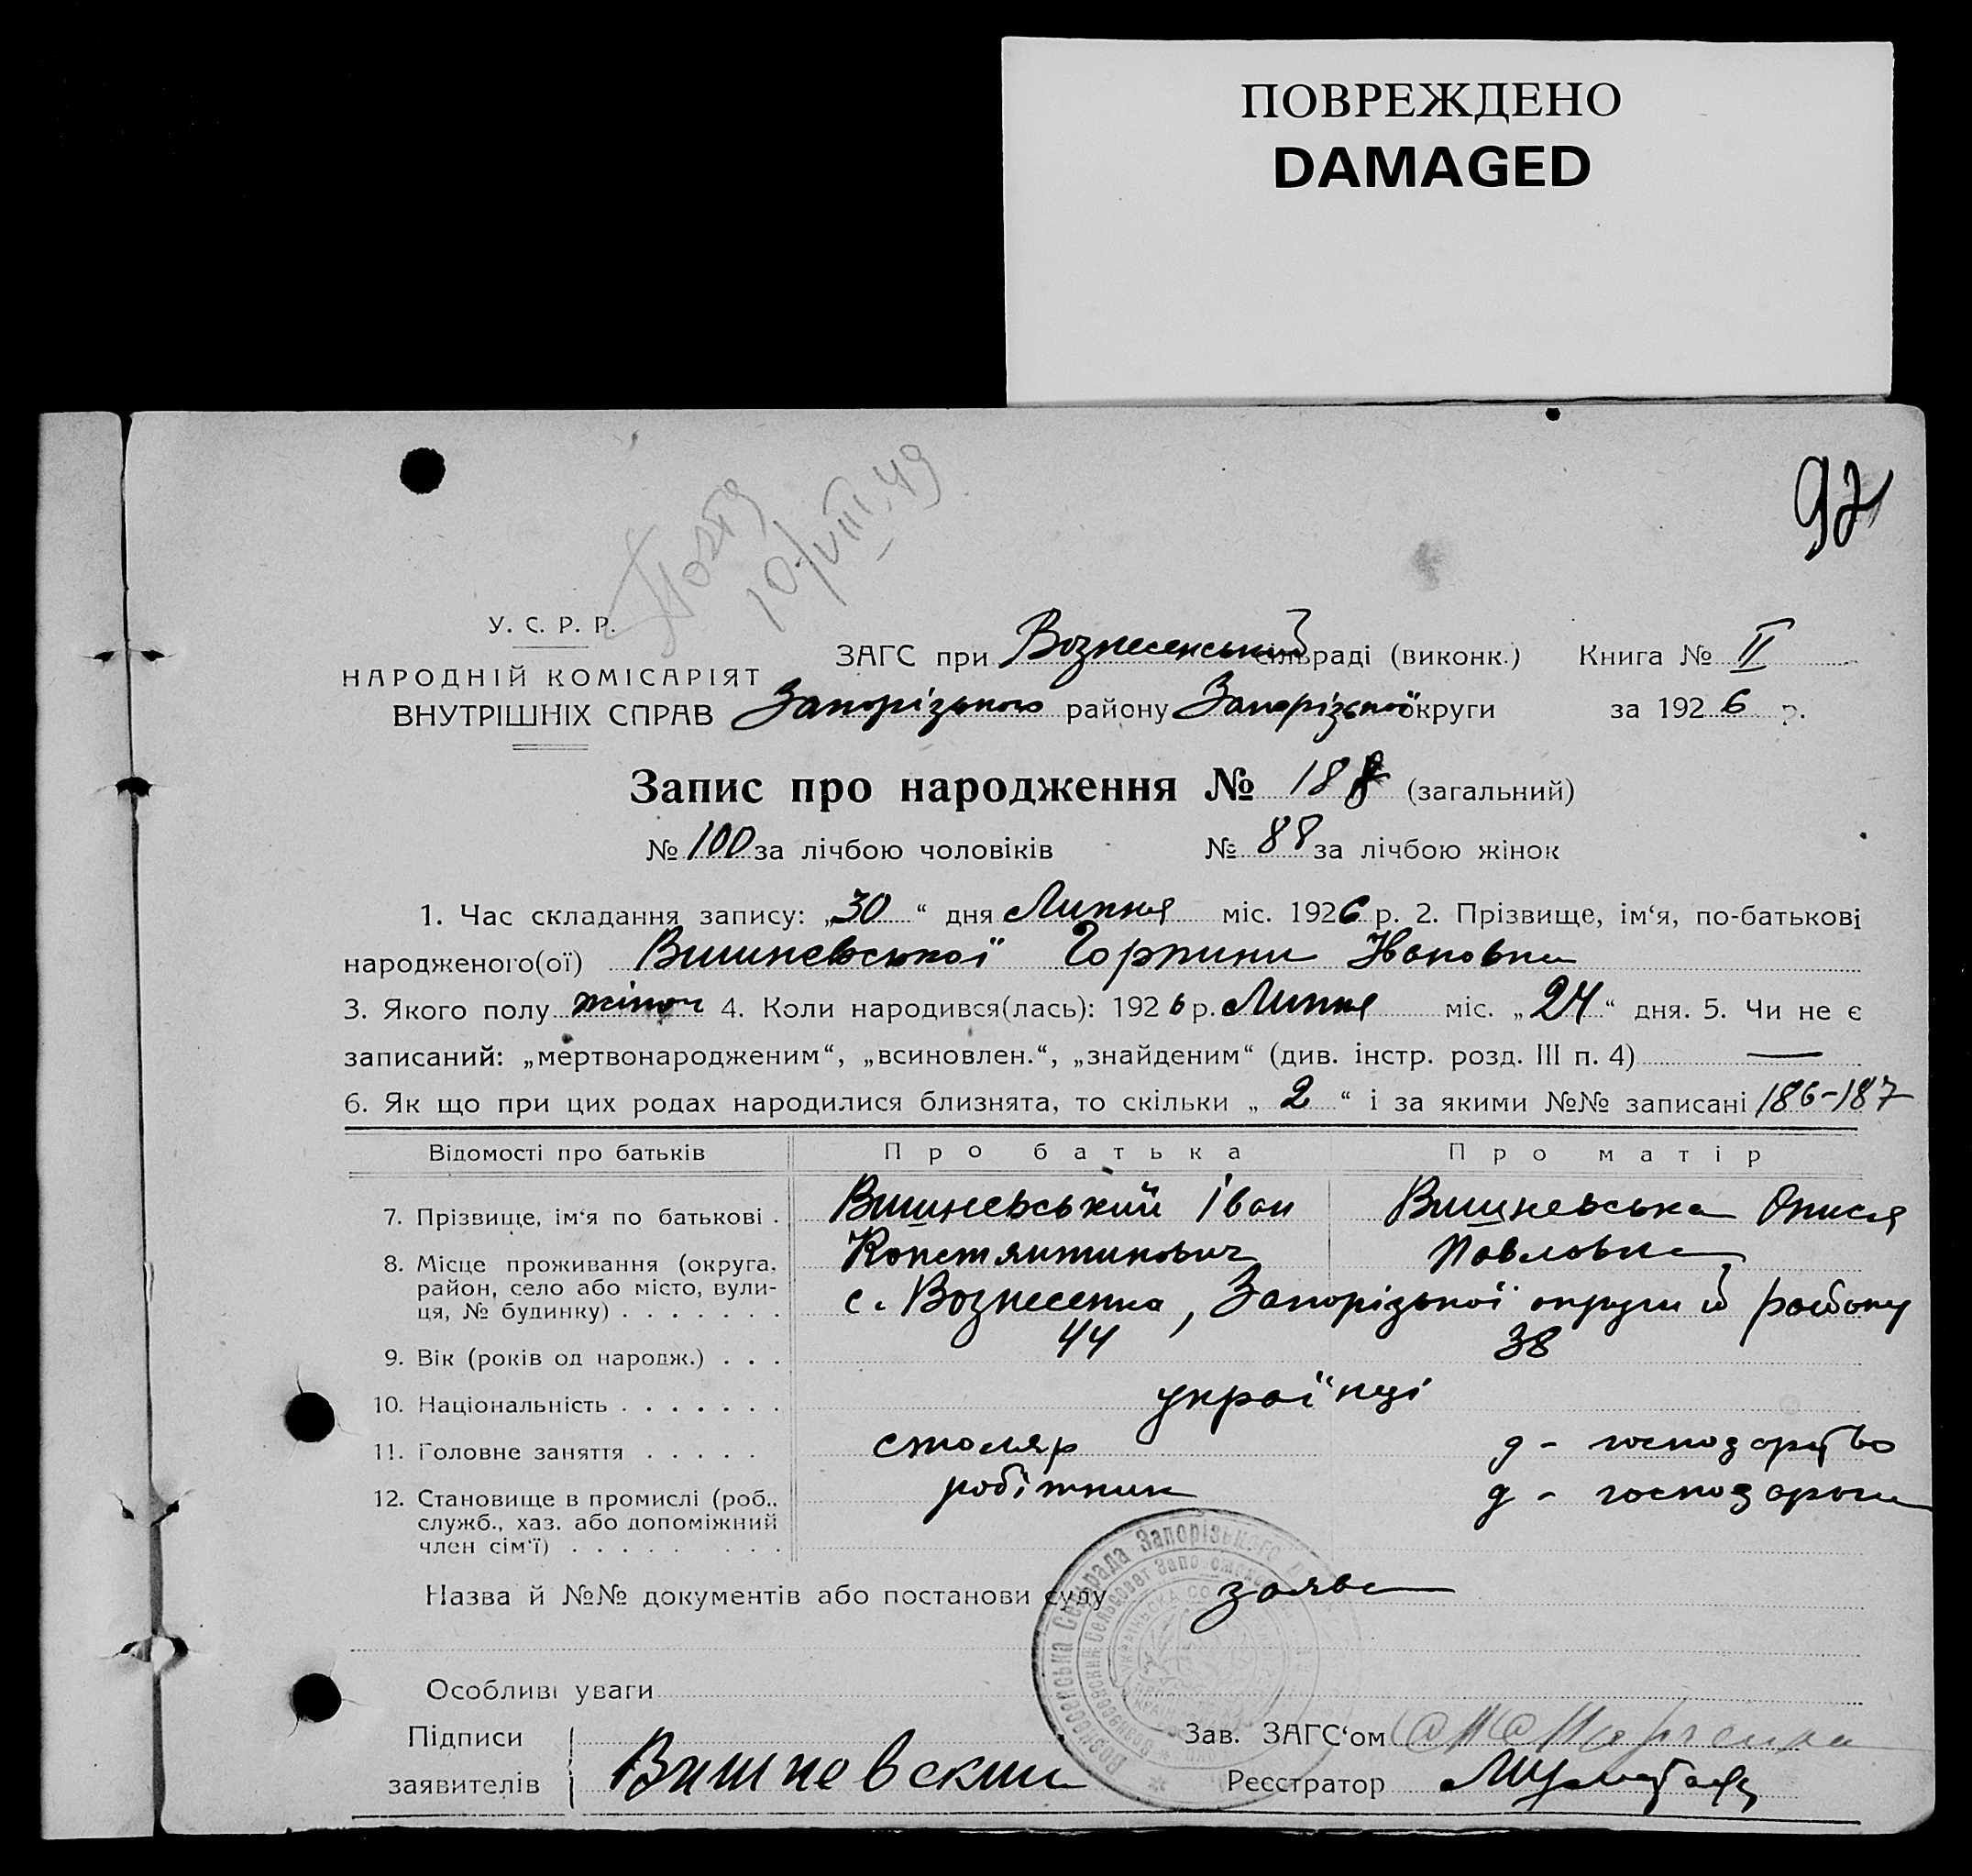 ПОВРЕЖДЕНО
DAMAGED
10/VIII.49
У. С. Р. Р.
НАРОДНІЙ КОМІСАРІЯТ
ВНУТРІШНІХ СПРАВ
ЗАГС при Вознесенський сільраді (виконк.) Книга № II
Запорізького району Запорізької округи за 1926 р.
Запис про народження № 188 (загальний)
№ 100 за лічбою чоловіків № 88 за лічбою жінок
1. Час складання запису: „30“ дня Липня міс. 1926 р. 2. Прізвище, ім‘я, по-батькові
народженого(ої) Вишневської Горпини Івановна
3. Якого полу жіноч 4. Коли народився(лась): 1926 р. Липня міс. „24“ дня. 5. Чи не є
записаний: „мертвонародженим“, „всиновлен.“, „знайденим“ (див. інстр. розд. III п. 4) —
6. Як що при цих родах народилися близнята, то скільки „2“ і за якими №№ записані 186-187
Відомості про батьків Про батька Про матір
7. Прізвище, ім‘я по батькові . Вишневський Іван Вишневська Онися
Констянтинович Павловна
8. Місце проживання (округа, район, село або місто, вули-ця, № будинку) . . . . . . . с. Вознесенка, Запорізької округи й району
9. Вік (років од народж.) . . . 44 38
10. Національність . . . . . . . українці
11. Головне заняття . . . . . столяр д - господарство
12. Становище в промислі (роб., служб., хаз. або допоміжний член сім‘ї) . . . . . . . . . робітник д - господарка
Назва й №№ документів або постанови суду заява
Особливі уваги
Підписи
заявителів Вишневский
Зав. ЗАГС‘ом
Реєстратор